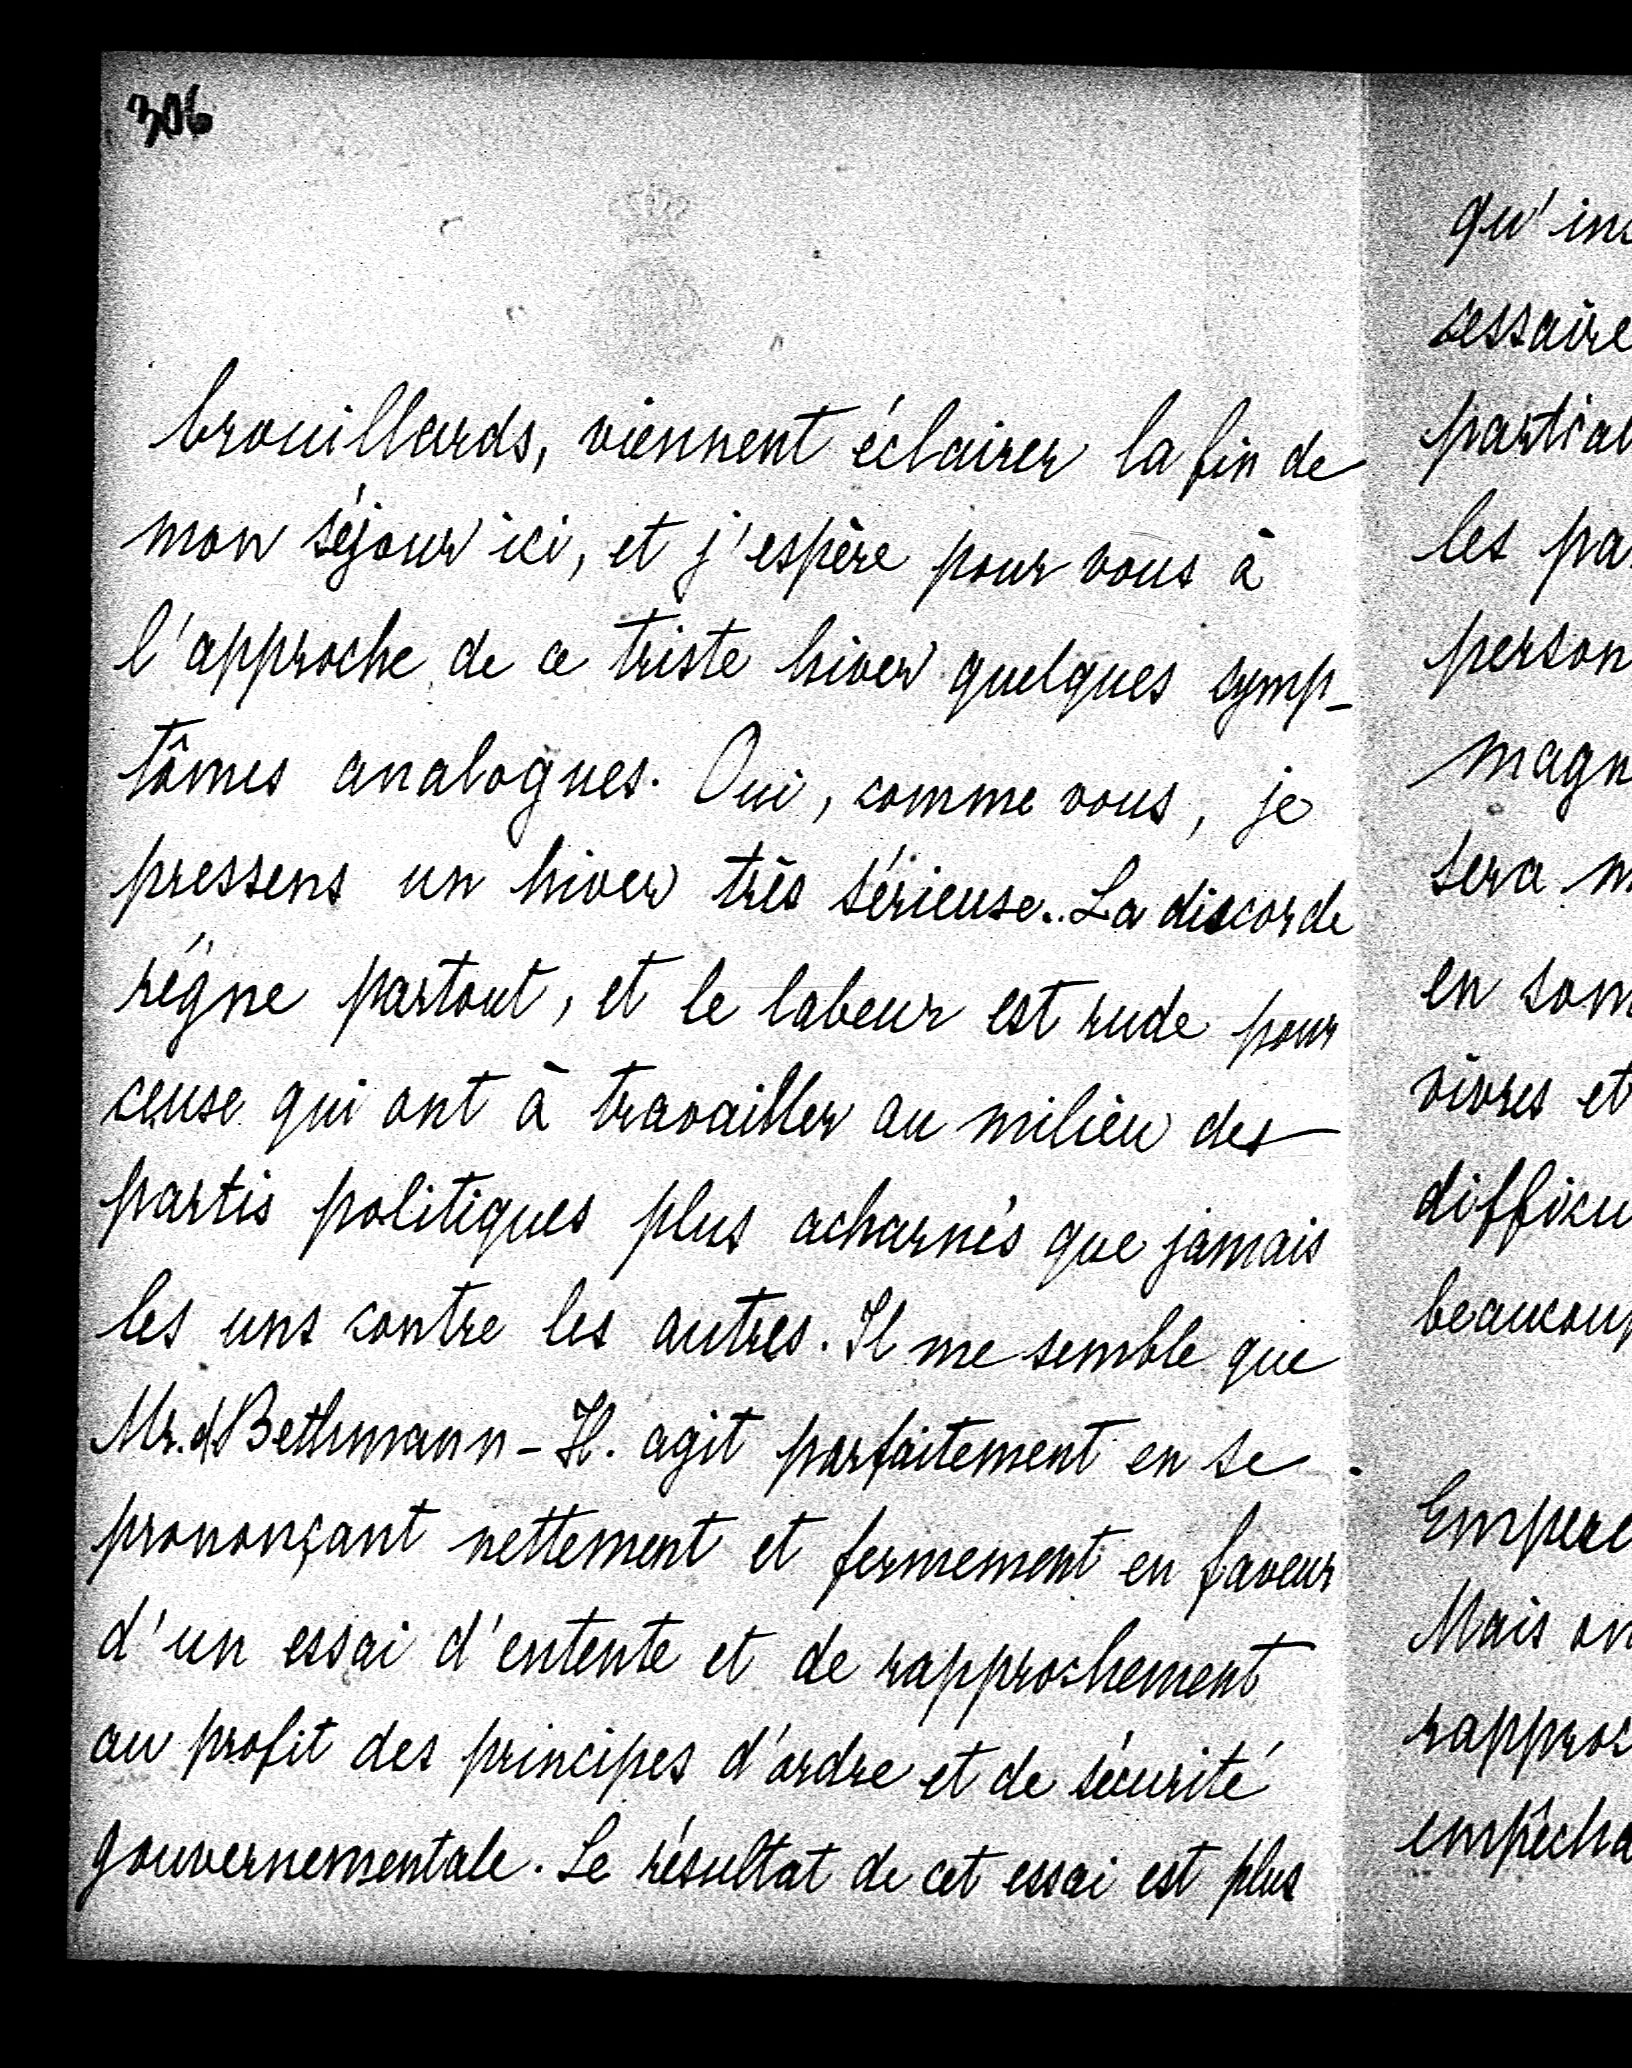 306
brouillards, viennent éclairer la fin de
mon séjour ici, et j'espère pour vous à
l'approche de ce triste hiver quelques symp-
tômes analogues. Oui, comme vous, je
pressens un hiver très sérieuse. La discorde
règne partout, et le labeur est rude pour
ceuse qui ont à travailler au milieu des
partis politiques plus acharnés que jamais
les uns contre les autres. Il me semble que
Mr. d Bethmann-H. agit parfaitement en se
prononçant nettement et fermement en faveur
d'un essai d'entente et de rapprochement
au profit des principes d'ordre et de sécurité
gouvernementale. Le résultat de cet essai est plus
qu'in
cessaire
partial
les pa
person
magn
sera
en som
vivres et
difficu
beaucoup
Empere
Mais on
rapproc
empêcha